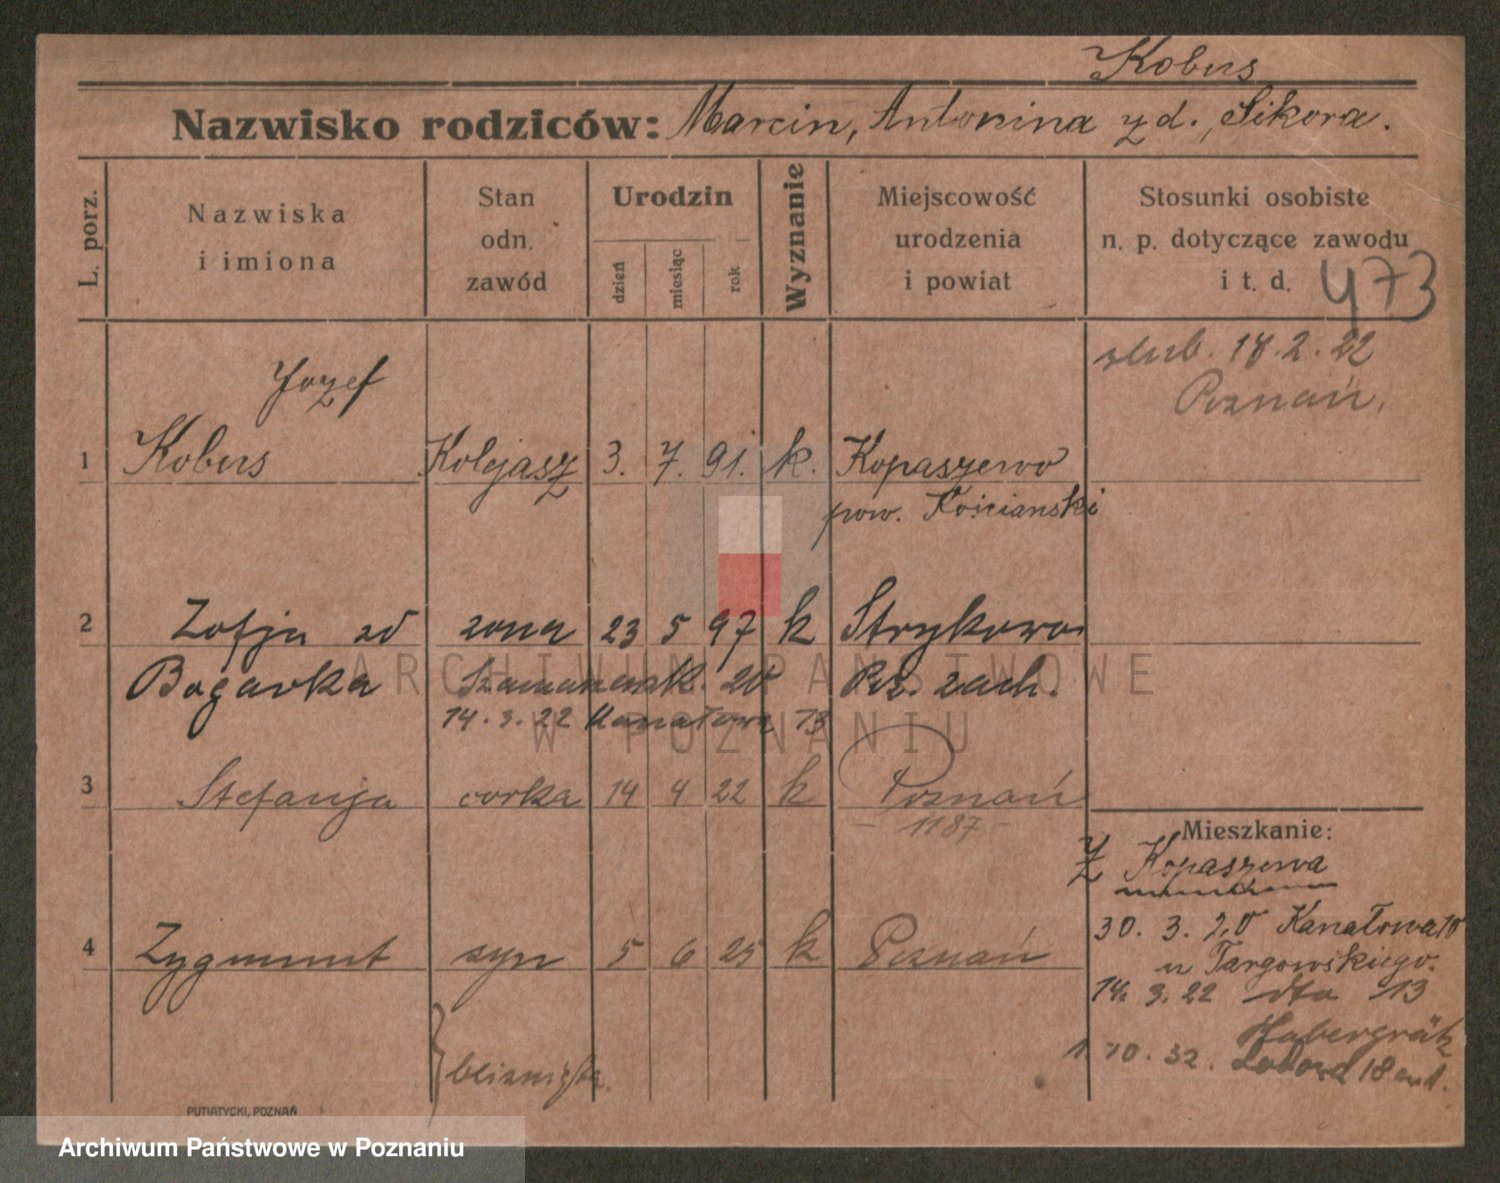 Kobus
Nazwisko rodziców: Marcin, Antonina z d. Sikora.
L. porz.
Nazwiska i imiona
Stan odn. zawód
Urodzin
dzień
miesiąc
rok
Wyznanie
Miejscowość urodzenia i powiat
Stosunki osobiste n. p. dotyczące zawodu i t. d.
473
ślub. 18.2.22
Poznań,
Józef
1 Kobus Kolejasz 3. 7. 91. k. Kopaszewo
pow. Kościanski
2 Zofja zd żona 23 5 97 k Strykowo
Bogavka 20 Pz. zach.
14.3.22 Kanałowa 13
3 Stefanja corka 14 4 22 k Poznań
- 1187 -
Mieszkanie:
Z Kopaszewa
30. 3. 20 Kanałowa 18
u Targowskiego.
14. 3. 22 dto 13
4 Zygmunt syn 5 6 25 k Poznań
Habergrätz
1 10. 32. 18
bliznięta.
PUTIATYCKI, POZNAŃ
ARCHIWUM PAŃSTWOWE
W POZNANIU
Archiwum Państwowe w Poznaniu